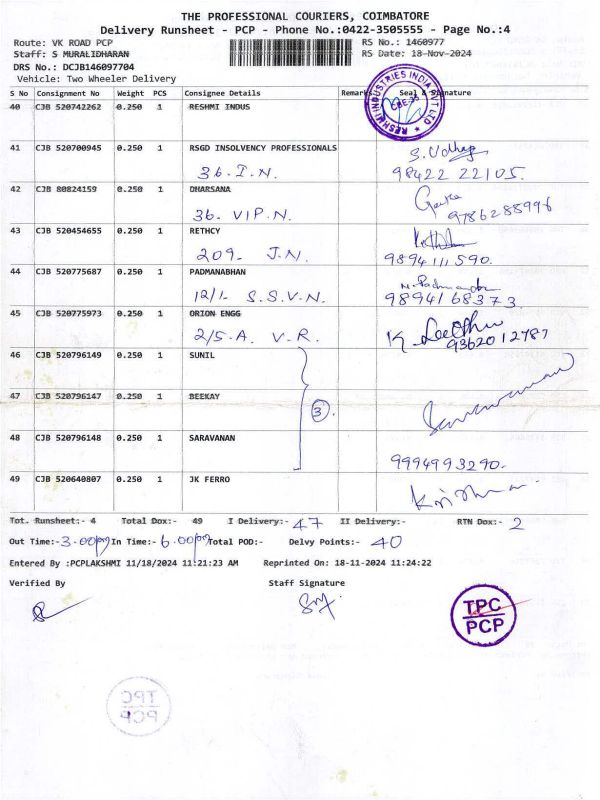 THE PROFESSIONAL COURIERS, COIMBATORE
Delivery Runsheet - PCP - Phone No.:0422-3505555 - Page No.:4
Route: VK ROAD PCP RS No.: 1460977
Staff: S MURALIDHARAN RS Date: 18-Nov-2024
DRS No.: DCJB146097704
Vehicle: Two Wheeler Delivery
S No Consignment No Weight PCS Consignee Details Remarks Seal & Signature
40 CJB 520742262 0.250 1 RESHMI INDUS
RESHMI INDUSTRIES INDIA PVT LTD
CBE-35
41 CJB 520700945 0.250 1 RSGD INSOLVENCY PROFESSIONALS
36. I.N. 98422 22105.
42 CJB 80824159 0.250 1 DHARSANA
36. V.P.N. 9786288996
43 CJB 520454655 0.250 1 RETHCY
209. J.N. 9894111590.
44 CJB 520775687 0.250 1 PADMANABHAN
12/1. S.S.V.N. 9894168373.
45 CJB 520775973 0.250 1 ORION ENGG
2/5.A. V.R. 9362012787
46 CJB 520796149 0.250 1 SUNIL
47 CJB 520796147 0.250 1 BEEKAY
3.
48 CJB 520796148 0.250 1 SARAVANAN
9994993290.
49 CJB 520640807 0.250 1 JK FERRO
Tot. Runsheet:- 4 Total Dox:- 49 I Delivery:- 47 II Delivery:- RTN Dox:- 2
Out Time:-3.00pm In Time:- 6.00pm Total POD:- Delvy Points:- 40
Entered By :PCPLAKSHMI 11/18/2024 11:21:23 AM Reprinted On: 18-11-2024 11:24:22
Verified By Staff Signature
TPC
PCP
TPC
PCP